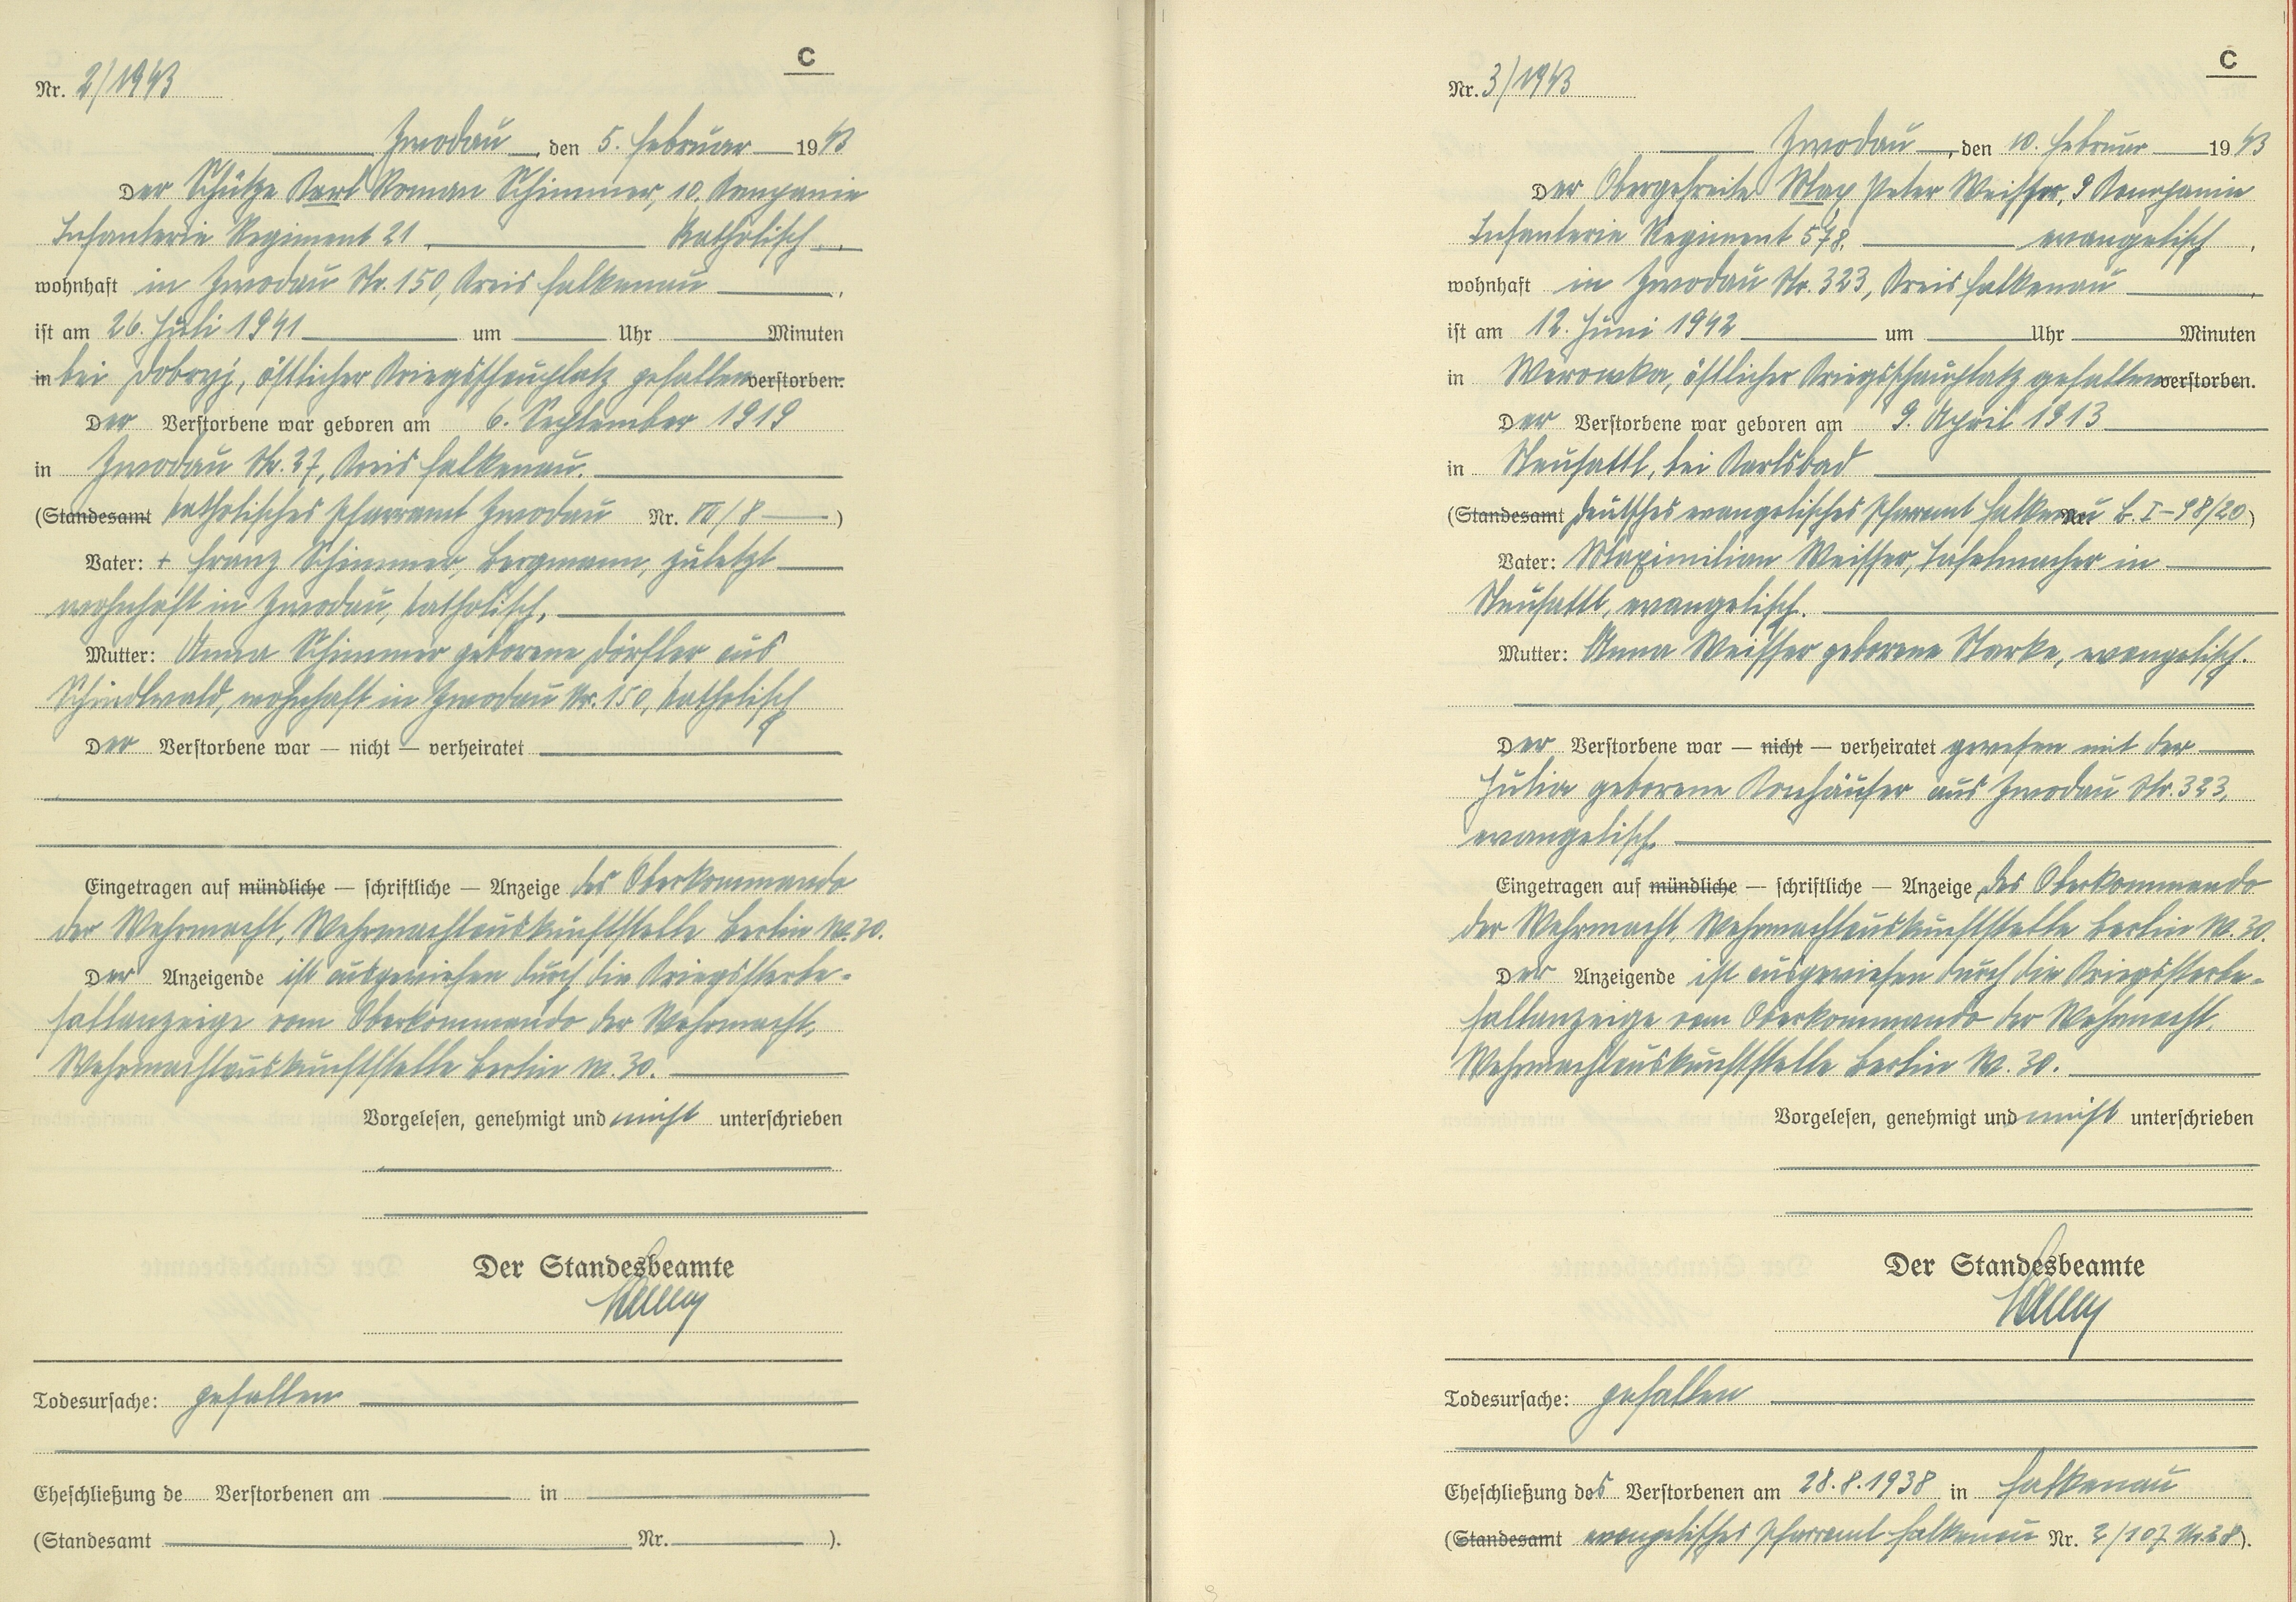 C
Nr. 2/1943
Zwodau, den 5. Februar 1943
Der Schütze Karl Roman Schimmer, 10. Kompanie
Infanterie Regiment 21, katholisch,
wohnhaft in Zwodau Nr. 150, Kreis Falkenau,
ist am 26. Juli 1941 um Uhr Minuten
in bei Dobryj, östlicher Kriegsschauplatz gefallen verstorben.
Der Verstorbene war geboren am 6. September 1919
in Zwodau Nr. 27, Kreis Falkenau.
(Standesamt katholisches Pfarramt Zwodau Nr. VII/8)
Vater: + Franz Schimmer, Bergmann, zuletzt
wohnhaft in Zwodau, katholisch.
Mutter: Anna Schimmer geborene Dörfler aus
Schindlwald, wohnhaft in Zwodau Nr. 150, katholisch
Der Verstorbene war — nicht — verheiratet
Eingetragen auf mündliche — schriftliche — Anzeige des Oberkommando
der Wehrmacht, Wehrmachtauskunftstelle Berlin W. 30.
Der Anzeigende ist ausgewiesen durch die Kriegssterbe-
fallanzeige vom Oberkommando der Wehrmacht,
Wehrmachtauskunftstelle Berlin W. 30.
Vorgelesen, genehmigt und nicht unterschrieben
Der Standesbeamte
Todesursache: gefallen
Eheschließung de Verstorbenen am in
(Standesamt Nr. ).
C
Nr. 3/1943
Zwodau, den 10. Februar 1943
Der Obergefreite Max Peter Weisser, 9 Kompanie
Infanterie Regiment 578, evangelisch,
wohnhaft in Zwodau Nr. 323, Kreis Falkenau,
ist am 12. Juni 1942 um Uhr Minuten
in Werowka, östlicher Kriegsschauplatz gefallen verstorben.
Der Verstorbene war geboren am 9. April 1913
in Neusattl, bei Karlsbad
(Standesamt deutsches evangelisches Pfarramt Falkenau Nr. B. I-98/20)
Vater: Maximilian Weisser, Tafelmacher in
Neusattl, evangelisch.
Mutter: Anna Weisser geborene Starke, evangelisch.
Der Verstorbene war — nicht — verheiratet gewesen mit der
Julia geborene Konhäuser aus Zwodau Nr. 323,
evangelisch.
Eingetragen auf mündliche — schriftliche — Anzeige des Oberkommando
der Wehrmacht, Wehrmachtauskunftstelle Berlin W. 30.
Der Anzeigende ist ausgewiesen durch die Kriegssterbe-
fallanzeige vom Oberkommando der Wehrmacht,
Wehrmachtauskunftstelle Berlin W. 30.
Vorgelesen, genehmigt und nicht unterschrieben
Der Standesbeamte
Todesursache: gefallen
Eheschließung des Verstorbenen am 28.8.1938 in Falkenau
(Standesamt evangelisches Pfarramt Falkenau Nr. 2/107 Nr. 28).